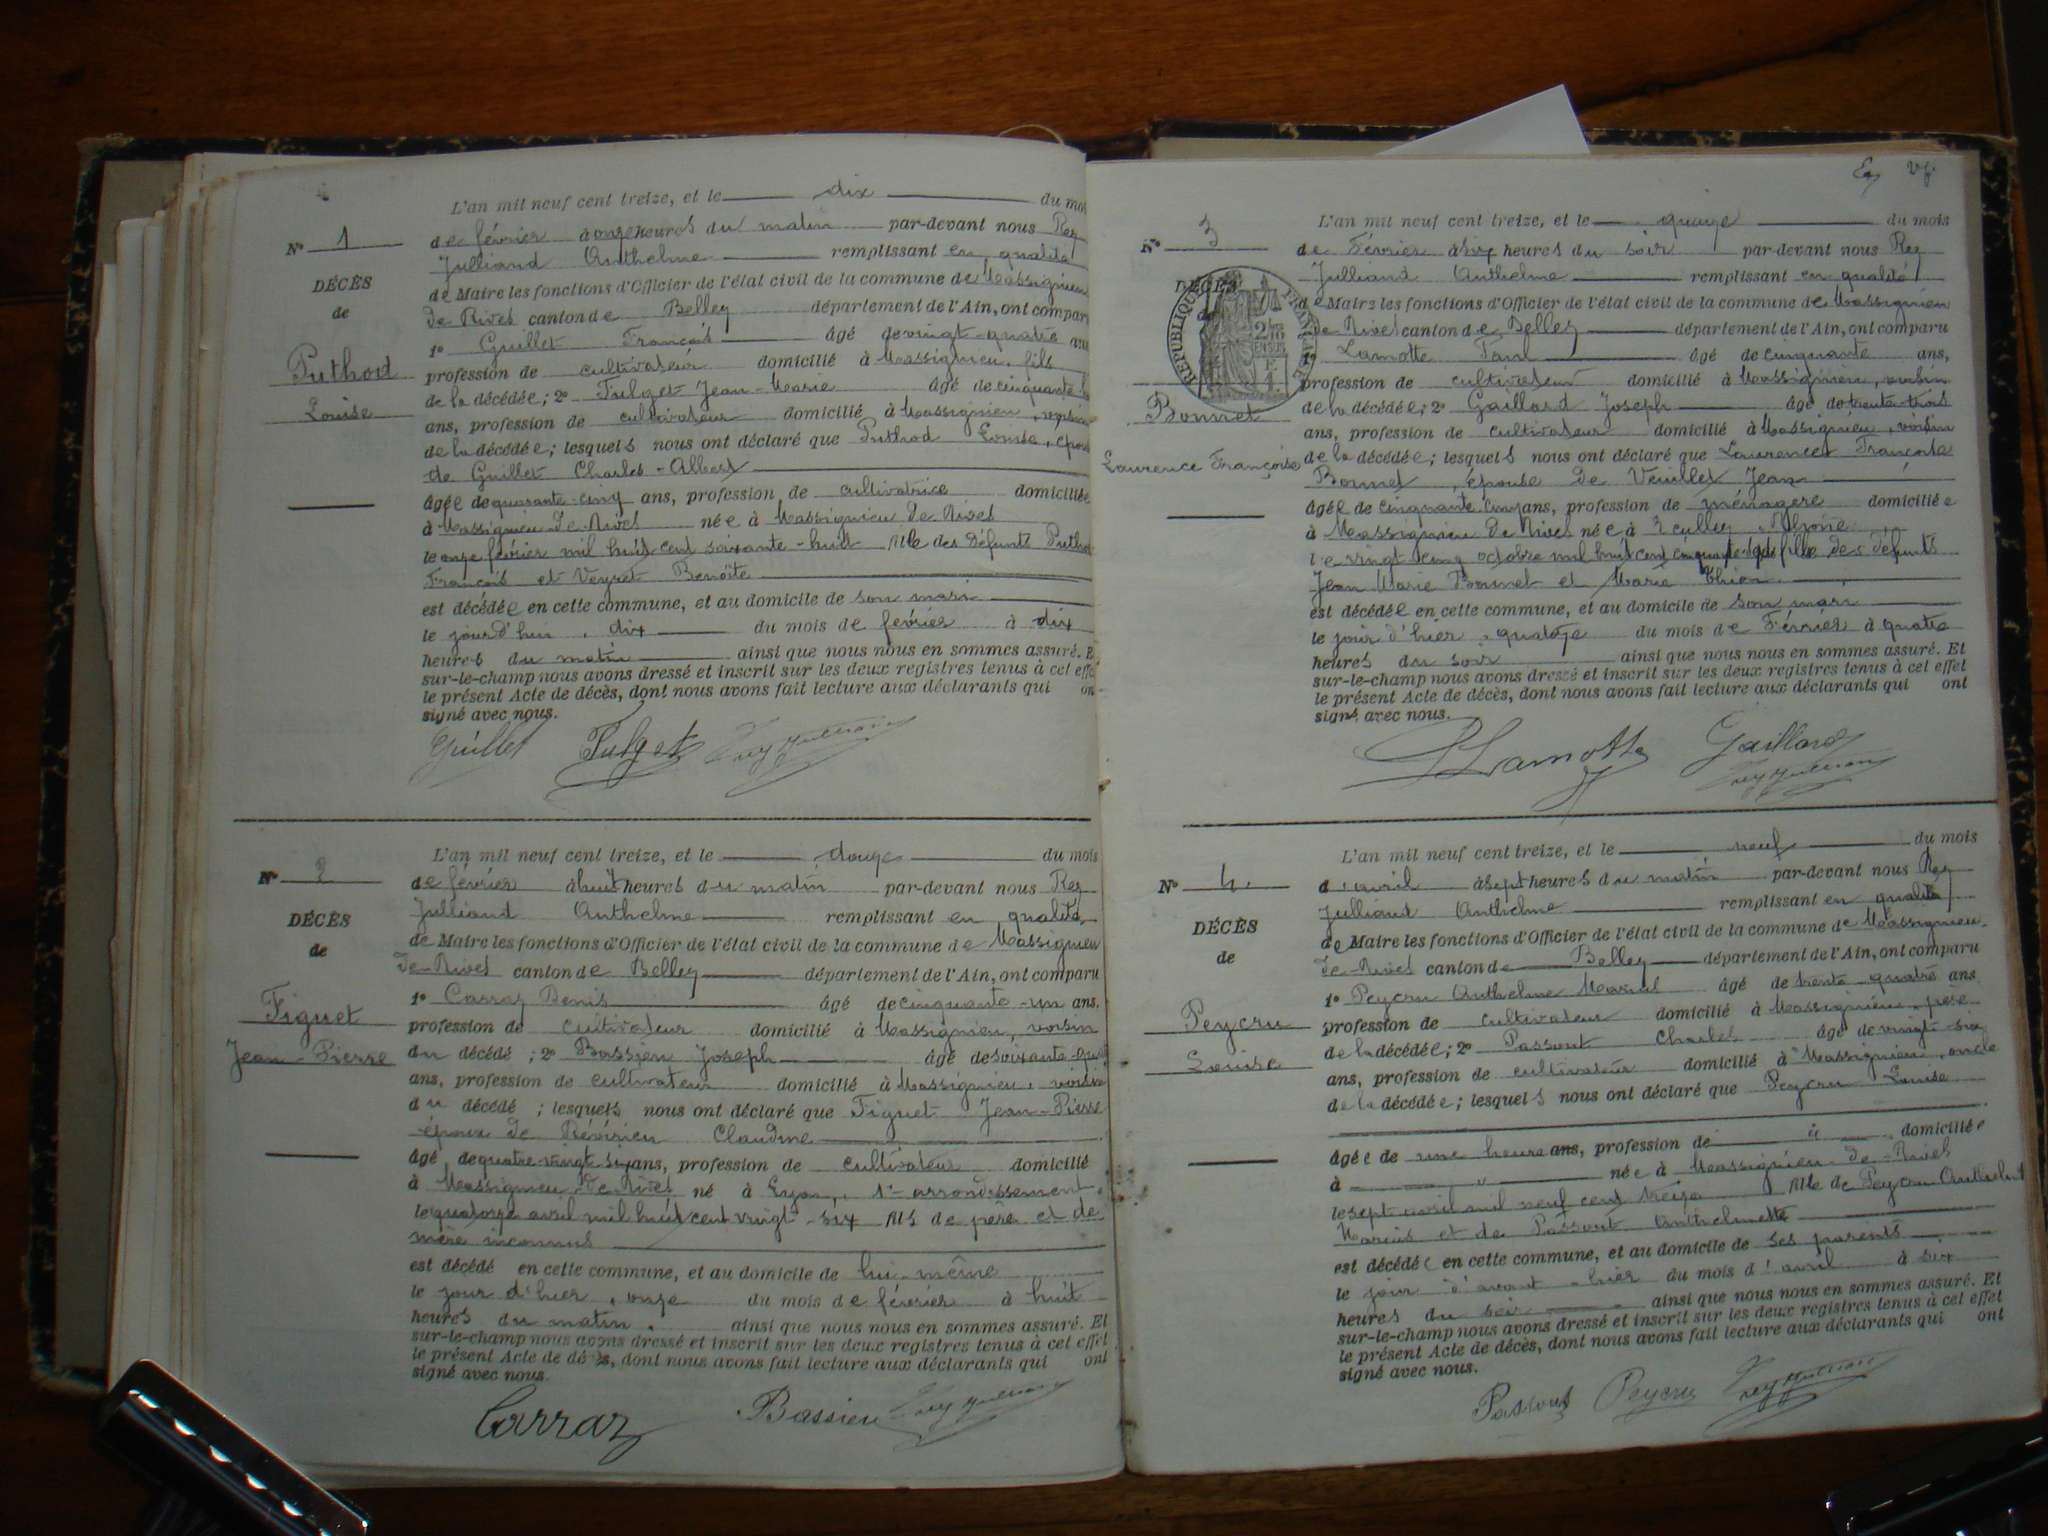 L'an mil neuf cent treize, et le dix du moi
N° 1
de février à onze heures du matin par-devant nous Rey
Julliand Anthelme remplissant en qualité
DÉCÈS
de Maire les fonctions d'Officier de l'état civil de la commune de Massignieu
de
de Rives canton de Belley département de l'Ain, ont compar
1° Guillet François âgé de vingt-quatre ans
Puthod
profession de cultivateur domicilié à Massignieu, fils
Louise
de la décédée; 2° Fulget Jean-Marie âgé de cinquante
ans, profession de cultivateur domicilié à Massignieu, voisin
de la décédée; lesquels nous ont déclaré que Puthod Louise, épou
de Guillet Charles-Albert
âgée de quarante-cinq ans, profession de cultivatrice domiciliée
à Massignieu de Rives née à Massignieu de Rives
le onze février mil huit cent soixante-huit fille des défunts Putho
François et Veyret Benoîte
est décédée en cette commune, et au domicile de son mari
le jour d'hui, dix du mois de février à dix
heures du matin ainsi que nous nous en sommes assuré. E
sur-le-champ nous avons dressé et inscrit sur les deux registres tenus à cet effe
le présent Acte de décès, dont nous avons fait lecture aux déclarants qui on
signé avec nous.
Guillet Fulget Rey Julliand
L'an mil neuf cent treize, et le douze du mois
N° 2
de février à huit heures du matin par-devant nous Rey
Julliand Anthelme remplissant en qualité
DÉCÈS
de Maire les fonctions d'Officier de l'état civil de la commune de Massignieu
de
de Rives canton de Belley département de l'Ain, ont comparu
1° Carraz Denis âgé de cinquante-un ans,
Figuet
profession de cultivateur domicilié à Massignieu, voisin
Jean-Pierre
du décédé; 2° Bassieu Joseph âgé de soixante-
ans, profession de cultivateur domicilié à Massignieu, voisin
du décédé; lesquels nous ont déclaré que Figuet Jean-Pierre
époux de Claudine
âgé de quatre vingt six ans, profession de cultivateur domicilié
à Massignieu de Rives né à Lyon, 1er arrondissement
le quatorze avril mil huit cent vingt-six fils de père et de
mère inconnus
est décédé en cette commune, et au domicile de lui-même
le jour d'hier, onze du mois de février à huit
heures du matin. ainsi que nous nous en sommes assuré. Et
sur-le-champ nous avons dressé et inscrit sur les deux registres tenus à cet effet
le présent Acte de décès, dont nous avons fait lecture aux déclarants qui ont
signé avec nous.
Carraz Bassieu Rey Julliand
L'an mil neuf cent treize, et le quinze du mois
N° 3
de Février à six heures du soir par-devant nous Rey
Julliand Anthelme remplissant en qualité
DÉCÈS
RÉPUBLIQUE FRANÇAISE
de Maire les fonctions d'Officier de l'état civil de la commune de Massignieu
de Rives canton de Belley département de l'Ain, ont comparu
1° Lamotte Paul âgé de cinquante ans,
profession de cultivateur domicilié à Massignieu, voisin
Bonnet
de la décédée; 2° Gaillard Joseph âgé de trente-trois
ans, profession de cultivateur domicilié à Massignieu, voisin
Laurence Françoise
de la décédée; lesquels nous ont déclaré que Laurence Françoise
Bonnet, épouse de Veuillet Jean
âgée de cinquante cinq ans, profession de ménagère domiciliée
à Massignieu de Rives née à Rhône
le vingt cinq octobre mil huit cent cinquante-sept fille des défunts
Jean Marie Bonnet et Marie
est décédée en cette commune, et au domicile de son mari
le jour d'hier, quatorze du mois de Février à quatre
heures du soir ainsi que nous nous en sommes assuré. Et
sur-le-champ nous avons dressé et inscrit sur les deux registres tenus à cet effet
le présent Acte de décès, dont nous avons fait lecture aux déclarants qui ont
signé avec nous.
Lamotte Gaillard
Rey Julliand
L'an mil neuf cent treize, et le neuf du mois
N° 4.
d'avril à sept heures du matin par-devant nous Rey
Julliand Anthelme remplissant en qualité
DÉCÈS
de Maire les fonctions d'Officier de l'état civil de la commune de Massignieu
de
de Rives canton de Belley département de l'Ain, ont comparu
1° Peycru Anthelme Marius âgé de trente-quatre ans
Peycru
profession de cultivateur domicilié à Massignieu, père
Louise
de la décédée; 2° Passout Charles âgé de vingt-six
ans, profession de cultivateur domicilié à Massignieu, oncle
de la décédée; lesquels nous ont déclaré que Peycru Louise
âgée de une heure ans, profession de domiciliée
à née à Massignieu-de-Rives
le sept avril mil neuf cent treize fille de Peycru Anthelme
Marius et de Passout Anthelmette
est décédée en cette commune, et au domicile de ses parents
le jour d'avant-hier du mois d'avril à six
heures du soir ainsi que nous nous en sommes assuré. Et
sur-le-champ nous avons dressé et inscrit sur les deux registres tenus à cet effet
le présent Acte de décès, dont nous avons fait lecture aux déclarants qui ont
signé avec nous.
Passout Peycru Rey Julliand